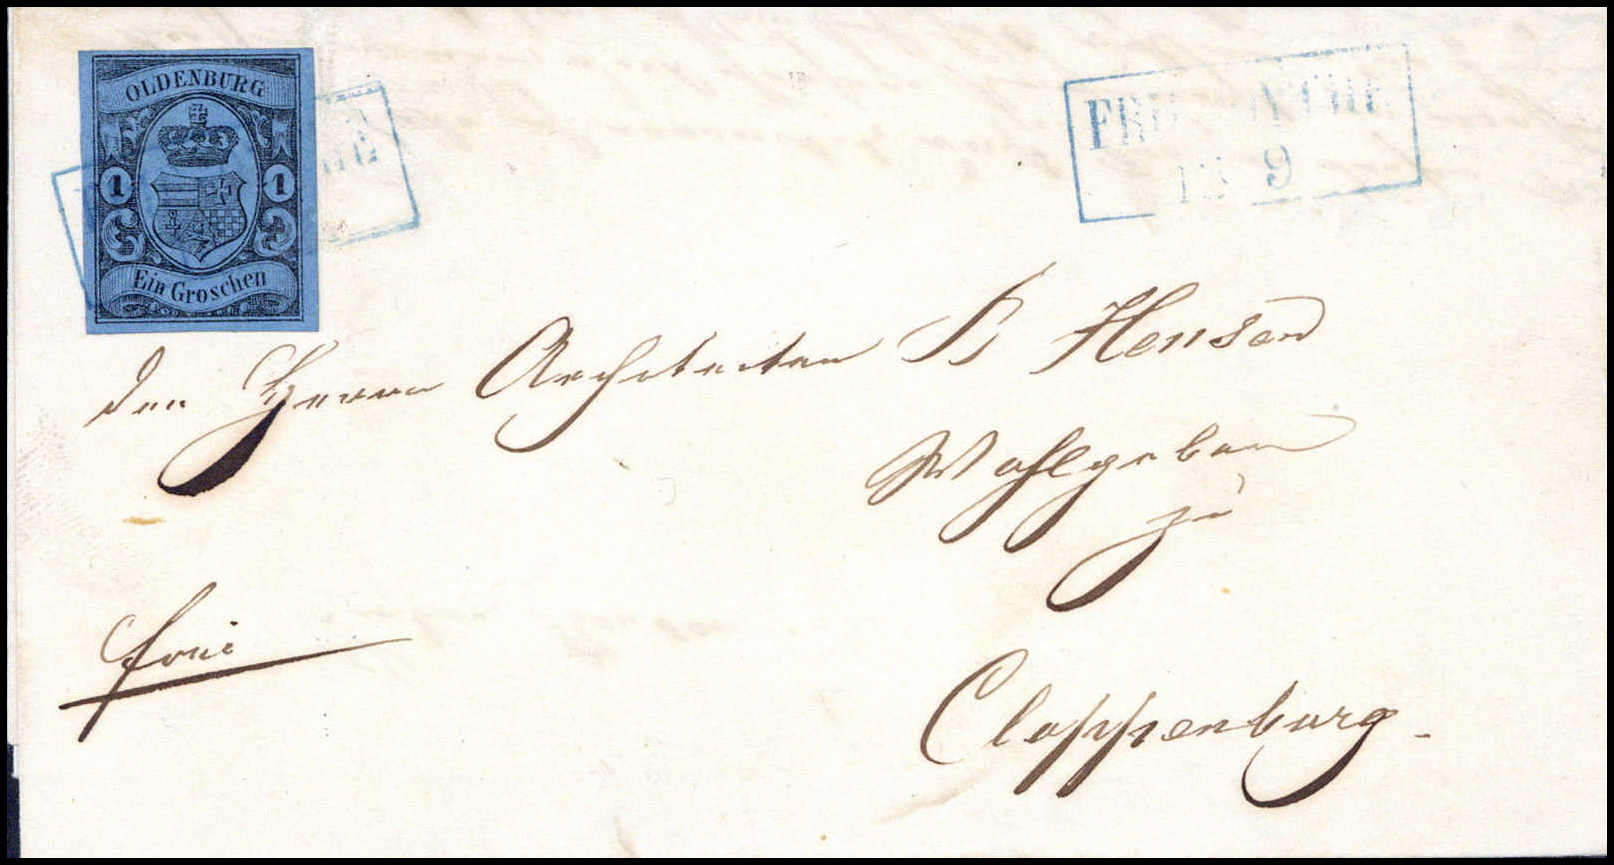 OLDENBURG
1 1
Ein Groschen
9
Den Herrn Architecten Hensen
Wohlgeboren
zu
Cloppenburg.
frei